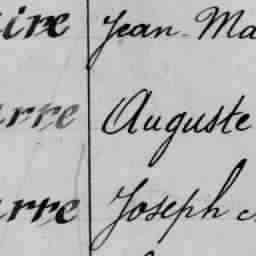 ire Jean Ma
rre Auguste
rre Joseph